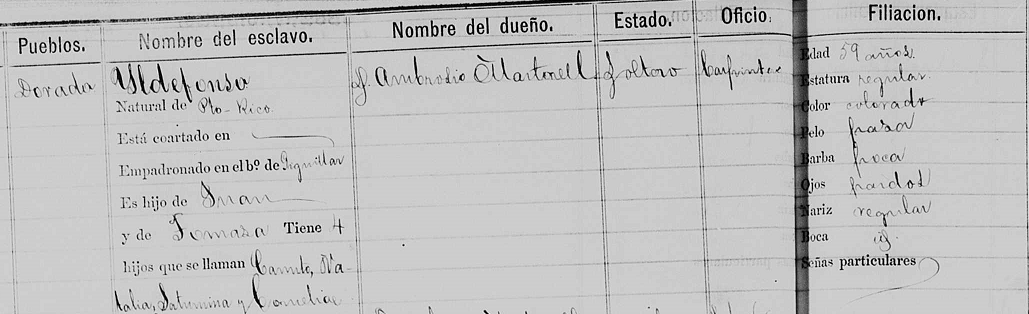 Pueblos.
Nombre del esclavo.
Nombre del dueño.
Estado.
Oficio.
Filiacion.
Dorado
Yldefonso
D. Ambrosio Martorell
Soltero
Carpintero
Edad 59 años.
Natural de Pto-Rico.
Estatura regular.
Color colorado
Está coartado en
Pelo pasa
Empadronado en el bº. de Higuillar
Barba poca
Es hijo de Juan
Ojos pardos
y de Tomasa Tiene 4
Nariz regular
Boca id.
hijos que se llaman Canuto, Na-
Señas particulares
talia, Saturnina y Cornelia